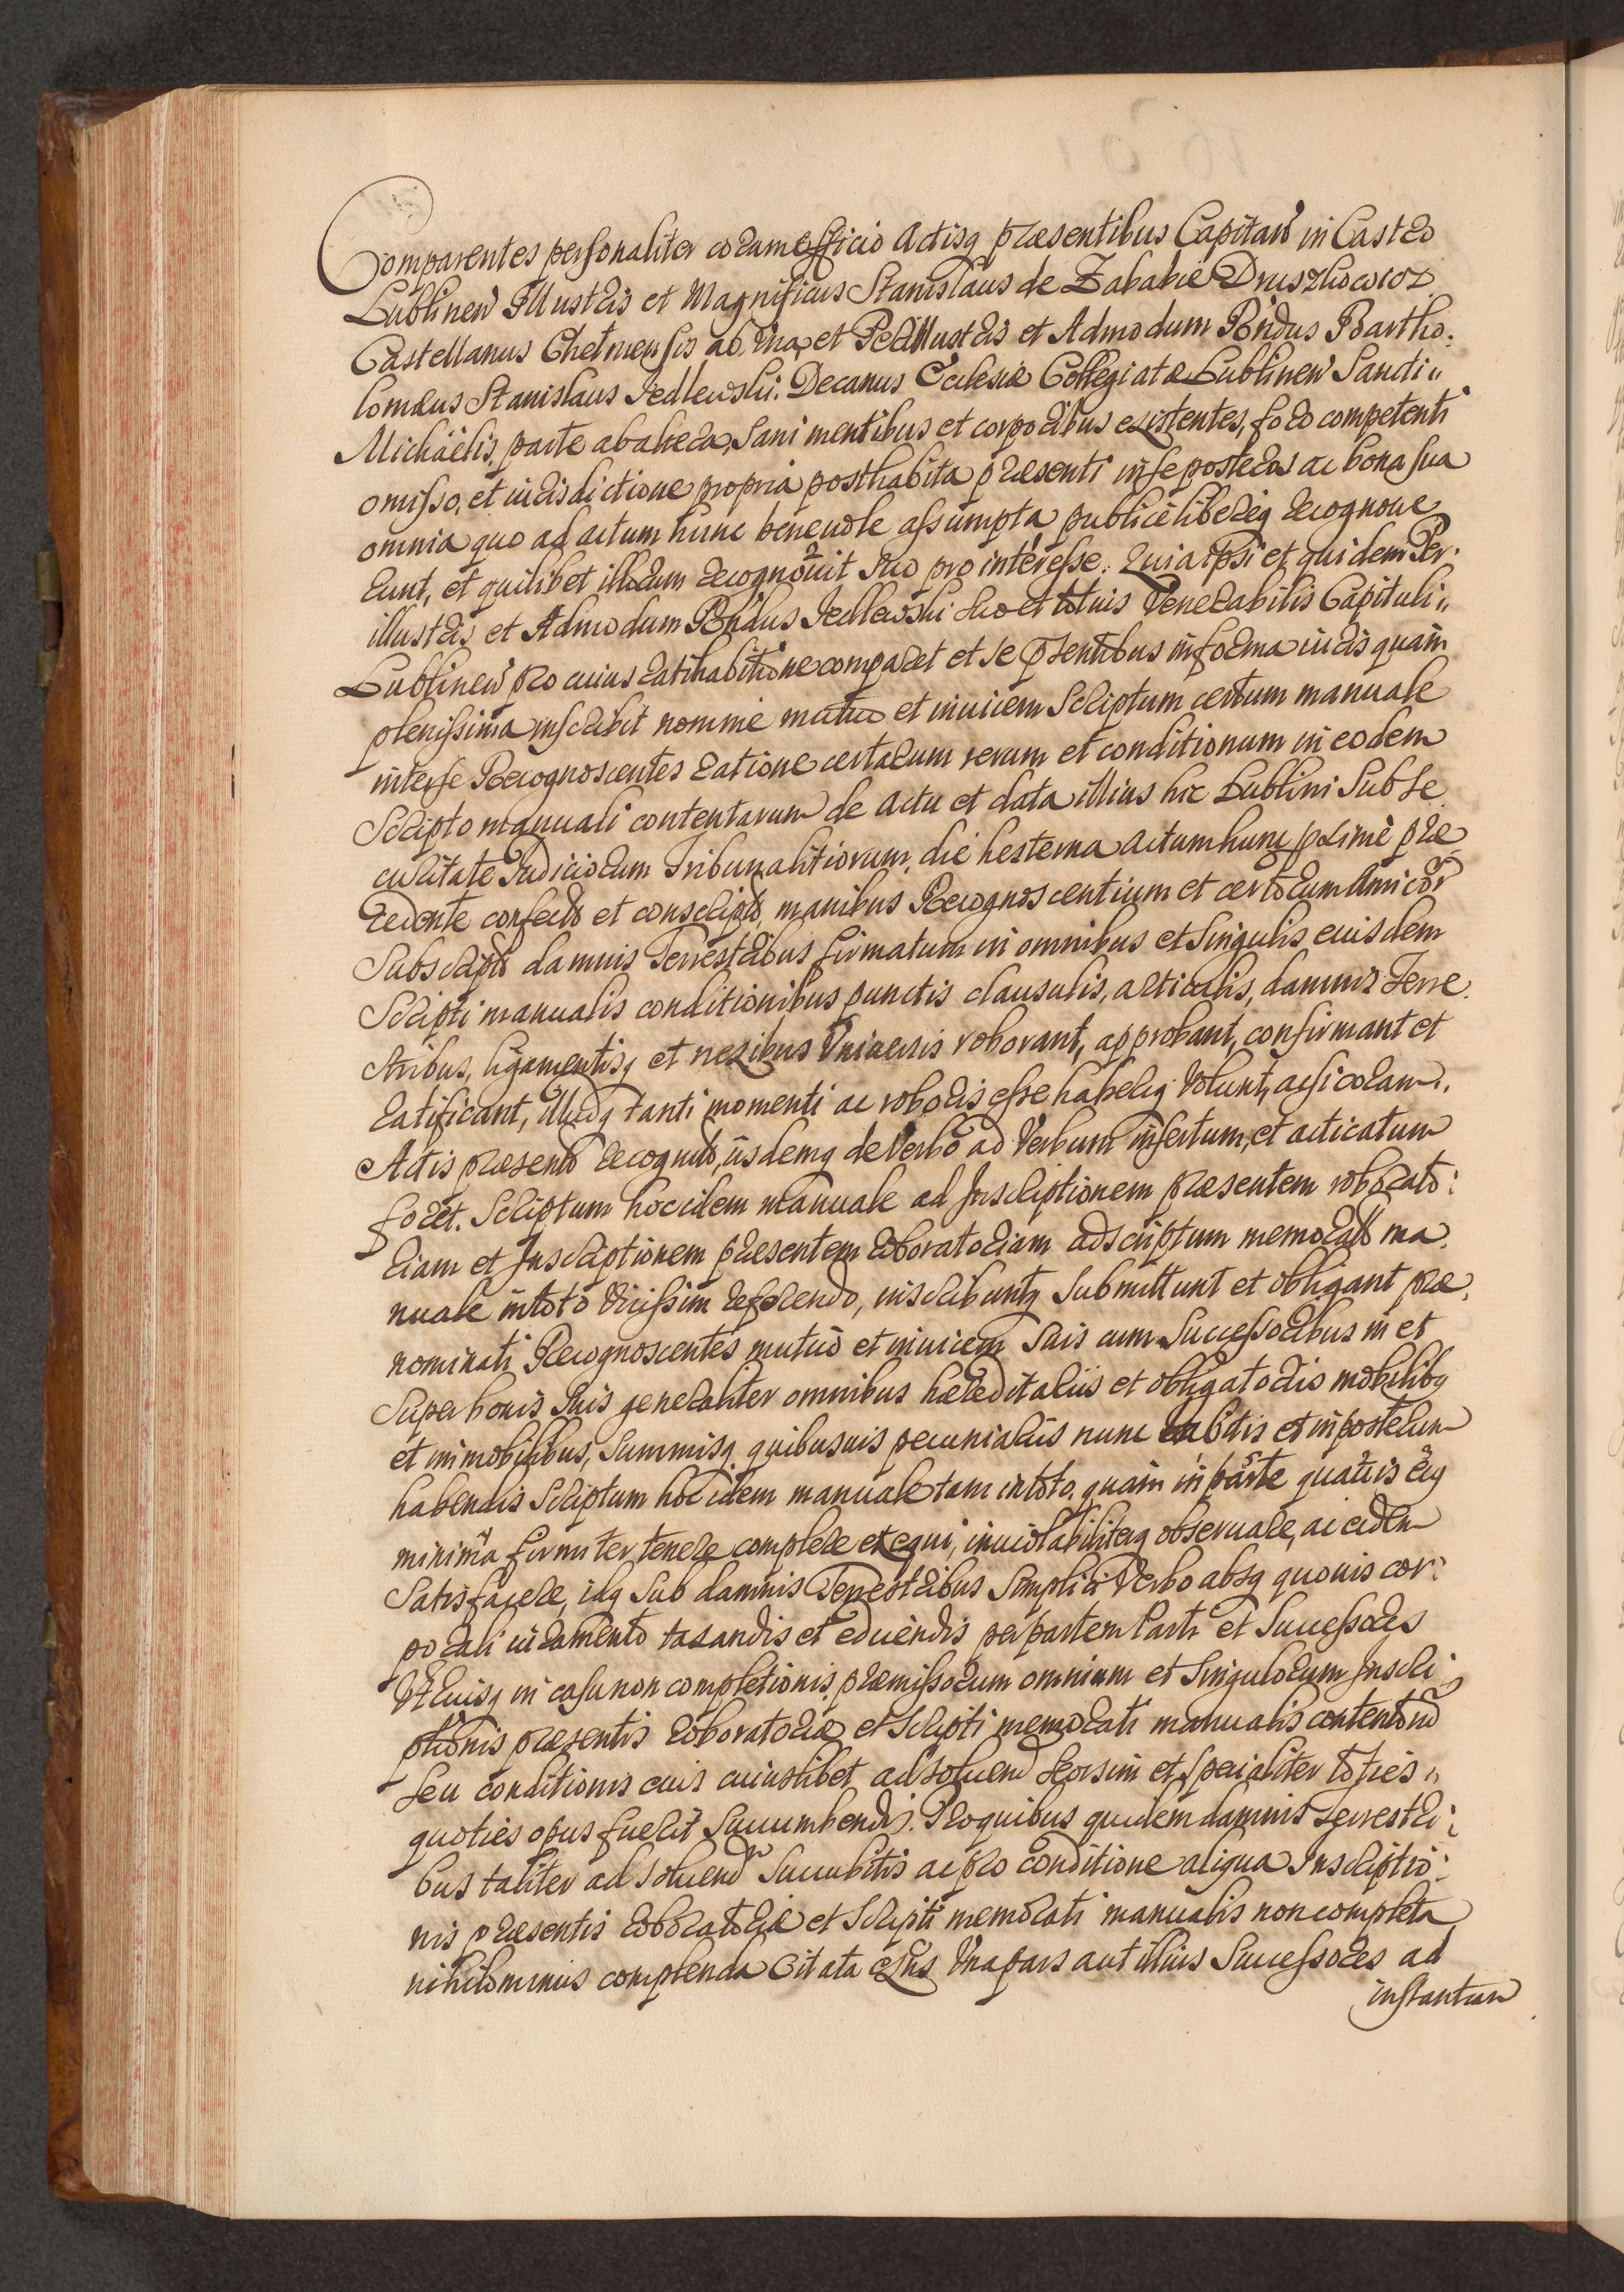 Comparentes personaliter coram officio Actisq præsentibus Capitan in Castro
Lublinen Illustris et Magnificus Stanislaus de Zababie Druszkiowicz
Castellanus Chelmensis ab una, et Perillustris et Admodum Rndus Bartho:
lomæus Stanislaus Jedlewski: Decanus Ecclesiæ Collegiatæ Lublinen Sancti
Michaëlis, parte ab altera, Sani mentibus et corporibus existentes, foro competenti
omisso, et iurisdictione propria posthabita præsenti in se posteros ac bona sua
omnia quo ad actum hunc benevole assumpta publice libereq recognove
runt, et quilibet illorum recognovit suo pro interesse. Quia ipsi et quidem Per:
illustris et Admodum Rndus Jedlewski suo et totius Venerabilis Capituli
Lublinen pro cuius ratihabitione comparet et se psentibus in forma iuris quam
plenissima inscribit nomine mutuo et invicem Scriptum certum manuale
inter se Recognoscentes ratione certarum rerum et conditionum in eodem
Scripto manuali contentarum de actu et data illius hic Lublini Sub se
curitate Judiciorum Tribunalitiorum, die hesterna actum hunc proximè præ
cedente confecto et conscripto, manibus Recognoscentium et certorum Amicor
Subscripto damnis Terrestribus firmatum in omnibus et Singulis eiusdem
Scripti manualis conditionibus punctis clausulis, articulis, damnis Terre
stribus, ligamentisq et nexibus Universis roborant, approbant, confirmant et
ratificant, Illudq tanti momenti ac roboris esse habereq volunt, acsi coram
Actis præsentib recognitū, iisdemq de Verbo ad Verbum insertum, et acticatum
foret. Scriptum hoc idem manuale ad Inscriptionem præsentem roborato:
riam et Inscriptionem præsentem roboratoriam ad scriptum memorato ma
nuale in toto vicissim referendo, inscribuntq Submittunt et obligant præ
nominati Recognoscentes mutuò et invicem Suis cum Successoribus in et
Super bonis Suis generaliter omnibus hæreditariis et obligatoriis mobilibq
et immobilibus, Summisq quibusvis pecuniariis nunc habitis et in posterum
habendis Scriptum hoc idem manuale tam in toto, quam in parte quavis eiq
minima firmiter tenere complere exequi, inviolabiliterq observare, ac eidem
Satisfacere, idq Sub damnis Terrestribus Simplici Verbo absq quovis cor:
porali iuramento taxandis et educendis per partem Parti et Successores
Utriusq in casu non completionis præmissorum omnium et Singulorum Inscri
ptionis præsentis roboratoriæ et Scripti memorati manualis contentorū
seu conditionis eius cuiuslibet ad solvend Seorsim et Specialiter toties
quoties opus fuerit Succumbendis. Pro quibus quidem damnis Terrestri
bus taliter ad solvend Succubitis ac pro conditione aliqua Inscriptio
nis præsentis roboratoriæ et Scripti memorati manualis non completa
nihilominus complenda Citata Una pars aut illius Successores ad
instantiam